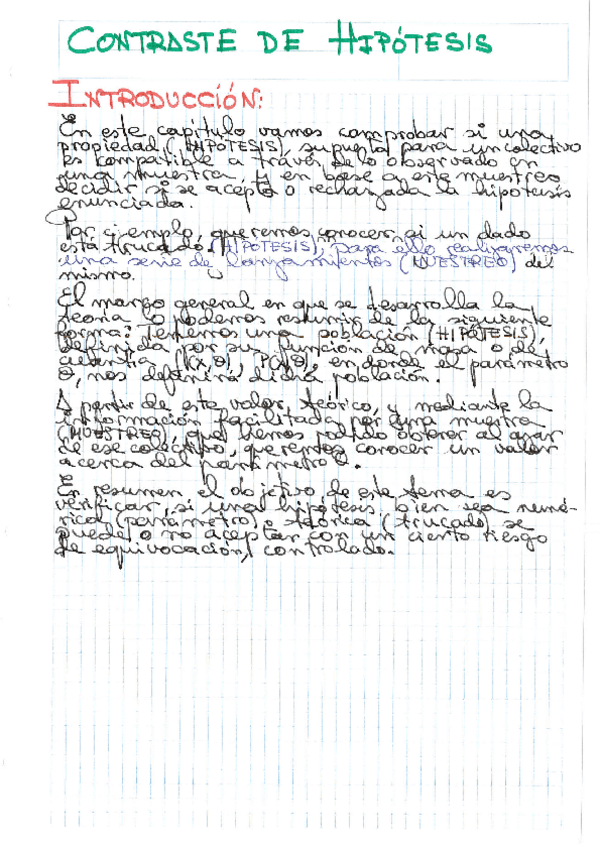 CONTRASTE DE HIPÓTESIS
INTRODUCCIÓN:
En este capitulo vamos comprobar si una
propiedad (HIPÓTESIS), supuesta para un colectivo
es compatible a través de lo observado en
una muestra, y en base a este muestreo
decidir si se acepta o rechazada la hipótesis
enunciada.
Por ejemplo, queremos conocer si un dado
está trucado (HIPÓTESIS), para ello realizaremos
una serie de lanzamientos (MUESTREO) del
mismo.
El marco general en que se desarrolla la
teoría lo podemos resumir de la siguiente
forma: Tenemos una población (HIPÓTESIS),
definida por su función de masa o de
cuantía f(x,θ), P(x,θ), en donde el parámetro
θ, nos definirá dicha población.
A partir de este valor, teórico, y mediante la
información facilitada por una muestra
(MUESTREO), que hemos podido obtener al azar
de ese colectivo, queremos conocer un valor
acerca del parámetro θ.
En resumen el objetivo de este tema es
verificar, si una hipótesis bien sea numé-
rica (parámetro) o teórica (trucado) se
puede o no aceptar con un cierto riesgo
de equivocación, controlado.